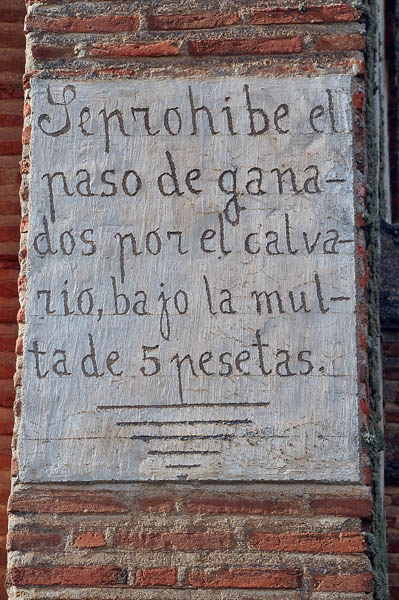 Seprohibe el
paso de gana-
dos por el calva-
rio, bajo la mul-
ta de 5 pesetas.